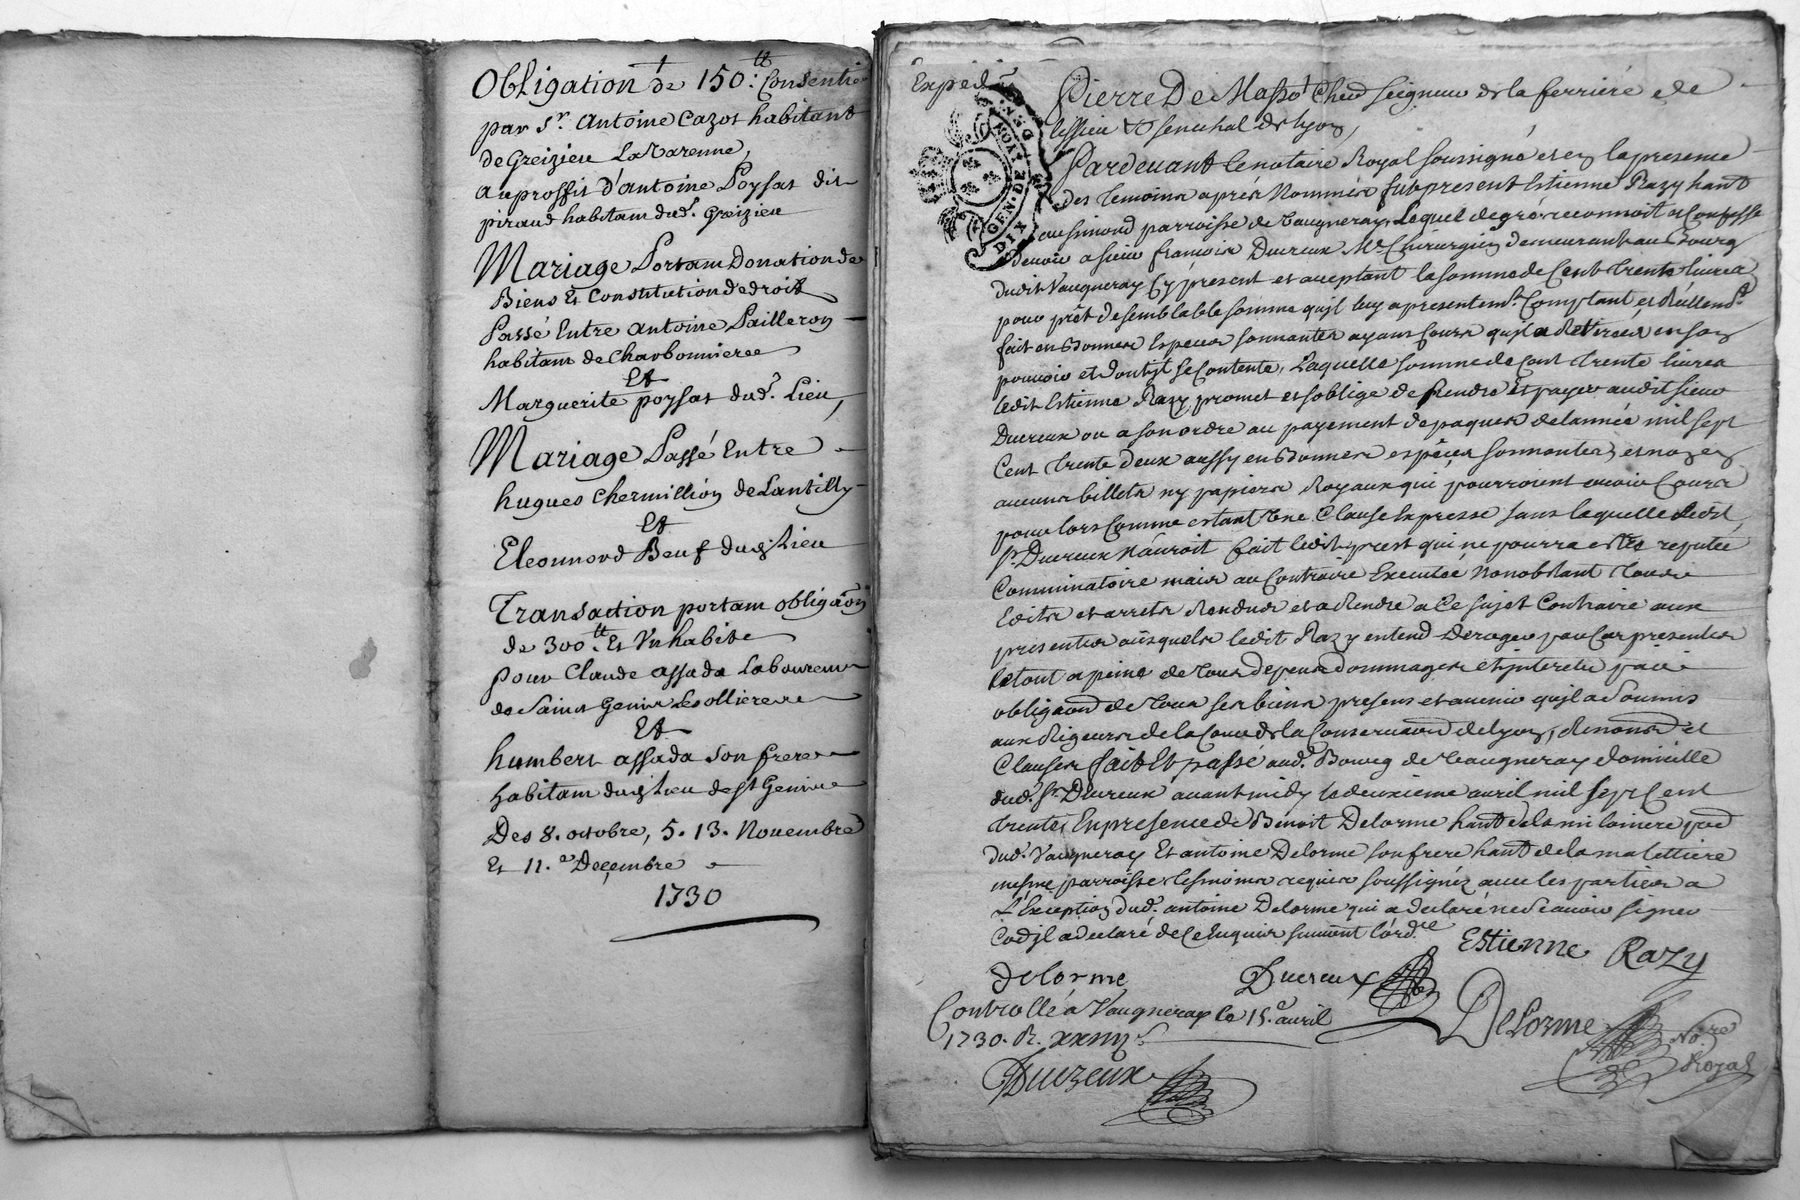 Obligation de 150.tt Consentie
par Sr. Antoine Cazot habitant
de Greizieu La Varenne,
au proffit d'antoine Poysat dit
piraud habitam dud. Greizieu
Mariage Portam Donation de
Biens Et Constitution de droit
Passé Entre Antoine Pailleron
habitam de Charbonnieres
Et
Marguerite poysat dud. Lieu,
Mariage Passé Entre
hugues Chermillion de Lantilly
Et
Eleonnord Beuf dud. Lieu
Transaction portam obligãon
de 300.tt Et Un habit
pour Claude assada Laboureur
de Saint Genis Les ollieres
Et
humbert assada son frere
habitam dud. Lieu de St Genis
Des 8. octobre, 5. 13. Novembre
Et 11.e Decembre
1730
Expéd.
Pierre De Masso Chevr Seigneur de la ferriere
Senechal de Lyon,
DIX DEN.
GEN. DE LYON
Pardevant le notaire Royal soussigné et en la presence
des temoins apres Nommés fut present Estienne Razy hant
parroisse de Vaugneray, Lequel de gré reconnoit et Confesse
devoir a sieur françois Ducreux Me. Chirurgien demeurant au Bourg
dudit Vaugneray Cy present et acceptant la somme de Cent trente livres
pour prêt de semblable somme quil luy a presentemt. Comptant, et Réellemt.
fait en Bonnes Especes sonnantes ayans Cours quil a Retirées en son
pouvoir et dont il se Contente, Laquelle somme de Cent trente livres
ledit Estienne Razy promet et soblige de Rendre et payer audit sieur
Ducreux ou a son ordre au payement de paques de lannée mil sept
Cent trente deux aussy en Bonnes especes sonnantes, et non en
aucuns billets ny papiers Royaux qui pourroient avoir Cours
pour lors Comme estant Une Clause Expresse sans laquelle Ledit
Sr. Ducreux n'auroit fait ledit prest qui ne pourra estre reputée
Comminatoire mais au Contraire Executée Nonobstant tous
Edits et arrets Rendus et a Rendre a Ce sujet Contraire aux
presentes ausquels ledit Razy entend deroger par Ces presentes
Le tout a peine de tous depens dommages et interets
obligaon de tous ses biens presens et avenir quil a soumis
aux Rigeurs de la Cour de la Conservaon de Lyon, Renona et
Clauses fait Et passé aud. Bourg de Vaugneray domicille
dud. Sr. Ducreux avant midy le deuxieme avril mil sept Cent
trente, En presence de Benoit Delorme hant
dud. Vaugneray Et antoine Delorme son frere hant de la
mesme parroisse tesmoins requis soussignéz avec les parties a
L'Exception dud. antoine Delorme qui a declaré ne scavoir signer
de Ce Enquis suivant l'ordce
Estienne Razy
delorme
Ducreux
Controllé a Vaugneray le 15.e avril
1730. R.
Delorme
Nore.
Royal
Ducreux